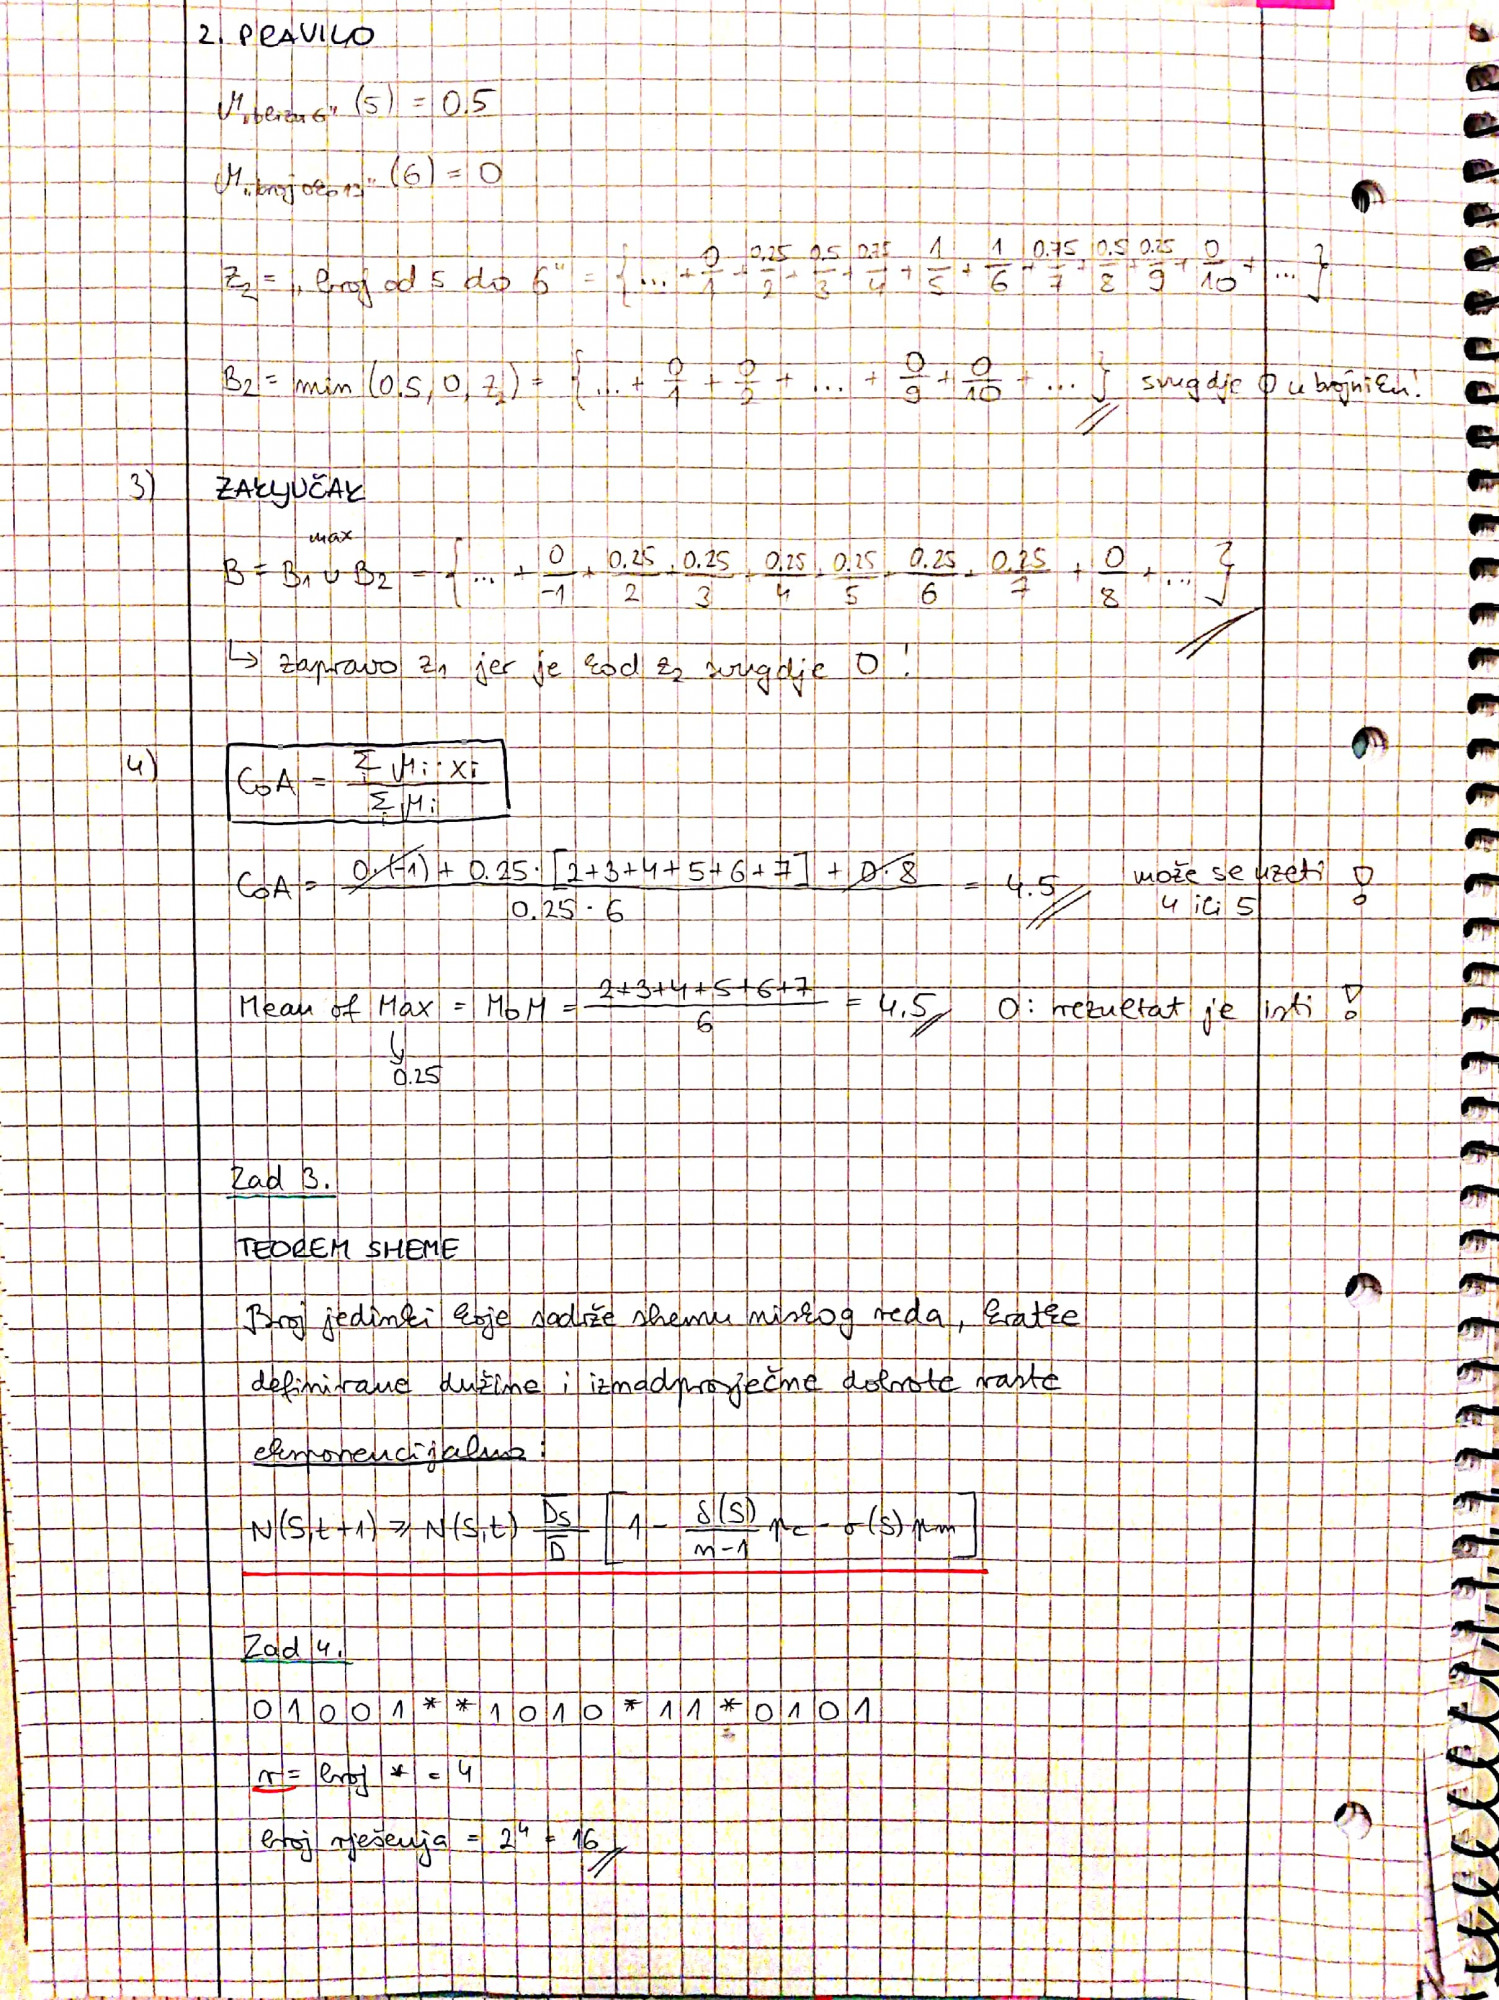 2. PRAVILO
μ„blizu 6" (5) = 0.5
μ„broj oko 13" (6) = 0
Z₂ = „broj od 5 do 6" = { ... + 0/1 + 0.25/2 + 0.5/3 + 0.75/4 + 1/5 + 1/6 + 0.75/7 + 0.5/8 + 0.25/9 + 0/10 + ... }
B₂ = min (0.5, 0, z₂) = { ... + 0/1 + 0/2 + ... + 0/9 + 0/10 + ... } svugdje 0 u brojniku!
3) ZAKLJUČAK
max
B = B₁ ∪ B₂ = { ... + 0/-1 + 0.25/2 + 0.25/3 + 0.25/4 + 0.25/5 + 0.25/6 + 0.25/7 + 0/8 + ... }
↳ zapravo z₁ jer je kod z₂ svugdje 0 !
4) CoA = Σi μi · xi / Σi μi
CoA = 0·(-1) + 0.25 · [2+3+4+5+6+7] + 0·8 / 0.25 · 6 = 4.5 može se uzeti 4 ili 5 !
Mean of Max = MoM = 2+3+4+5+6+7 / 6 = 4.5 O: rezultat je isti !
↓
0.25
Zad 3.
TEOREM SHEME
Broj jedinki koje sadrže shemu niskog reda, kratke
definirane dužine i iznadprosječne dobrote raste
eksponencijalno:
N(S,t+1) ≥ N(S,t) D̄s/D̄ [ 1 - δ(S)/n-1 pc - o(S) pm ]
Zad 4.
0 1 0 0 1 * * 1 0 1 0 * 1 1 * 0 1 0 1
r = broj * = 4
broj rješenja = 2⁴ = 16